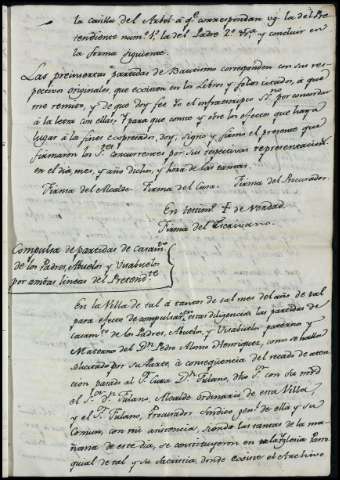 la casilla del Arbol á q.e correspondan vg. la del Pre-
tendiente num.o 1.o la del Padre 2.o &.a y concluir en
la forma siguiente
Las preinsertas partidas de Bautismo corresponden con sus res-
pectivos originales, que existen en los Libros y folios citados, á que
me remito, y de que doy fee Yo el infraescripto SS.no por concordar
á la letra con ellas: Y para que conste y obre los efectos que haya
lugar á la fineo expresado, doy, signo y firmo el presente que
firmaron los S.res concurrentes por sus respectivas representacion.s
en el dia, mes, y año dichos, y hora de las tantas.
Firma del Alcalde Firma del Cura. Firma del Procurador.
En testim.o de Verdad
Firma del Escrivano.
Compulsa de partidas de Casam.to
de los Padres, Abuelos y Visabuelos
por ambas lineas del Pretend.te
En la Villa de tal á tantos de tal mes del año de tal
para efecto de compulsar estas diligencia las partidas de
casam.to de los Padres, Abuelos, y Visabuelos paterno y
Materno del D.n Pedro Alonso OHenriguez, como se halla
solicitado por su Parte á consequencia del recado de aten-
cion parado al S.r Cura D.n Fulano, dho S.r con su mrd
el S.or D.n Fulano, Alcalde ordinario de esta Villa,
y el S.r Fulano, Procurador Sindico gen.l de ella y su
Comun, con mi asistencia, siendo las tantas de la ma-
ñana de este dia, se constituyeron en la Iglesia Parro-
quial de tal y su Sacristia, donde existe el Archivo